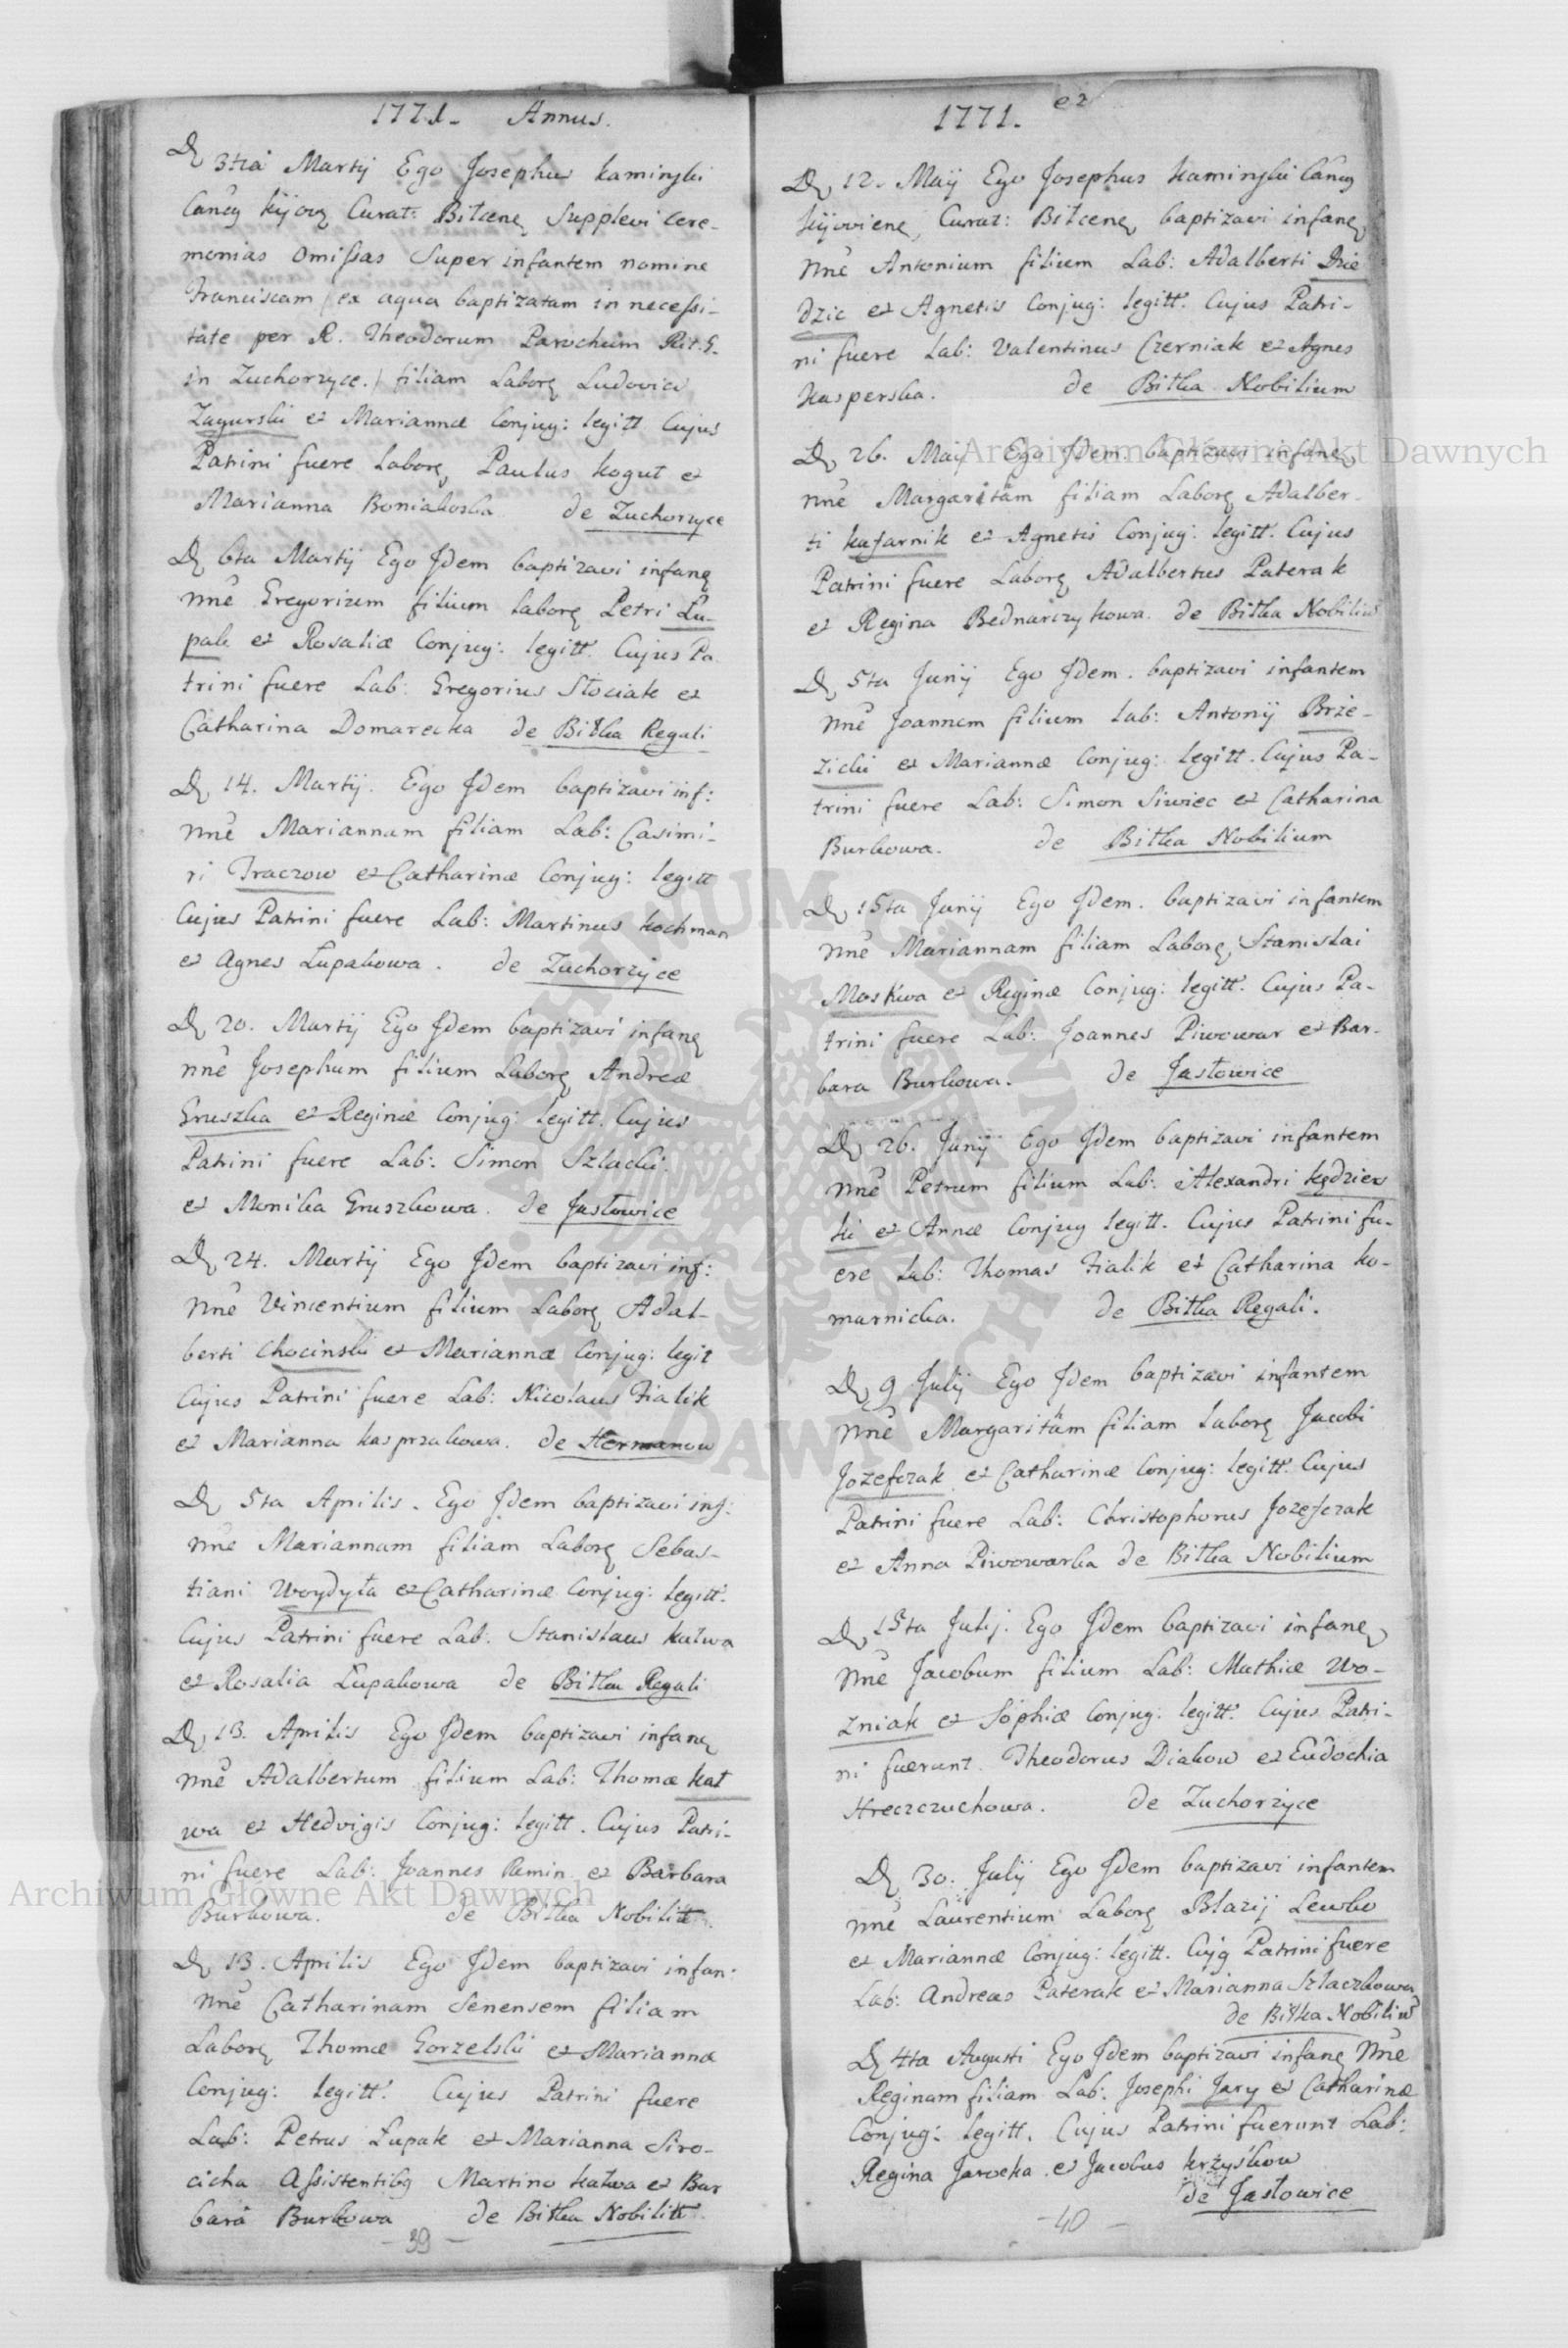 1771. Annus.
D 3tia Martij Ego Josephus Kaminski
Canc9 Kijov9 Curat: Biłcen9 Supplevi Cere-
monias omissas Super infantem nomine
Franciscam (ex aqua baptizatam in necessi-
tate per R. Theodorum Parochum Rit: G.
in Zuchorzyce.) filiam Labor9 Ludovici
Zagurski et Mariannæ Conjug: legitt Cujus
Patrini fuere Labor9 Paulus Kogut et
Marianna Boniakoska de Zuchorzyce
D 6ta Martij Ego Jdem baptizavi infan9
nnē Gregorium filium Labor9 Petri Łu-
pak et Rosaliæ Conjug: legitt. Cujus Pa
trini fuere Lab: Gregorius Słociak et
Catharina Domarecka de Biłka Regali
D 14. Martij. Ego Jdem baptizavi inf:
nnē Mariannam filiam Lab: Casimi-
ri Traczow et Catharinæ Conjug: legitt
Cujus Patrini fuere Lab: Martinus Kochman
et Agnes Łupakowa. de Zuchorzyce
D 20. Martij Ego Jdem baptizavi infan9
nnē Josephum filium Labor9 Andreæ
Gruszka et Reginæ Conjug: legitt. Cujus
Patrini fuere Lab: Simon Szlacki
et Monika Gruszkowa. de Jasłowice
D 24. Martij Ego Jdem baptizavi inf:
nnē Vincentium filium Labor9 Adal-
berti Chocinski et Mariannæ Conjug: legit
Cujus Patrini fuere Lab: Nicolaus Fialik
et Marianna Kasprzakowa. de Hermanow
D 5ta Aprilis. Ego Jdem baptizavi inf:
nnē Mariannam filiam Labor9 Sebas-
tiani Woydyła et Catharinæ Conjug: legitt.
Cujus Patrini fuere Lab: Stanislaus Kałwa
et Rosalia Łupakowa de Biłka Regali
D 13. Aprilis Ego Jdem baptizavi infan9
nnē Adalbertum filium Lab: Thomæ Kał
wa et Hedvigis Conjug: legitt. Cujus Patri-
ni fuere Lab: Joannes Remin et Barbara
Burkowa. de Biłka Nobilitt.
D 13. Aprilis Ego Jdem baptizavi infan:
nnē Catharinam Senensem filiam
Labor9 Thomæ Gorzelski et Mariannæ
Conjug: legitt. Cujus Patrini fuere
Lab: Petrus Łupak et Marianna Siro-
cicha Assistentib9 Martino Kałwa et Bar
bara Burkowa de Biłka Nobilitt.
- 39 -
1771. e2
D 12. Maij Ego Josephus Kaminski Canc9
Kijovien9 Curat: Biłcen9 baptizavi infan9
nnē Antonium filium Lab: Adalberti Dzie
dzic et Agnetis Conjug: legitt. Cujus Patri-
ni fuere Lab: Valentinus Czerniak et Agnes
Kasperska. de Biłka Nobilium
D 26. Maij Ego Jdem baptizavi infan9
nnē Margaritam filiam Labor9 Adalber-
ti Kafarnik et Agnetis Conjug: legitt. Cujus
Patrini fuere Labor9 Adalbertus Paterak
et Regina Bednarczykowa. de Biłka Nobiliū
D 5ta Junij Ego Jdem. baptizavi infantem
nnē Joannem filium Lab: Antonij Brze-
zicki et Mariannæ Conjug: legitt. Cujus Pa-
trini fuere Lab: Simon Siwiec et Catharina
Burkowa. de Biłka Nobilium
D 15ta Junij Ego Jdem. baptizavi infantem
nnē Mariannam filiam Labor9 Stanislai
Moskwa et Reginæ Conjug: legitt. Cujus Pa-
trini fuere Lab: Joannes Piwowar et Bar-
bara Burkowa. de Jasłowice
D 26. Junij Ego Jdem baptizavi infantem
nnē Petrum filium Lab: Alexandri Kędziers
ki et Annæ Conjug legitt. Cujus Patrini fu-
ere Lab: Thomas Fialik et Catharina Ko-
marnicka. de Biłka Regali.
D 9 Julij Ego Jdem baptizavi infantem
nnē Margaritam filiam Labor9 Jacobi
Jozefczak et Catharinæ Conjug: legitt. Cujus
Patrini fuere Lab: Christophorus Jozefczak
et Anna Piwowarka de Biłka Nobilium
D 15ta Julij. Ego Jdem baptizavi infan9
nnē Jacobum filium Lab: Mathiæ Wo-
zniak et Sophiæ Conjug: legitt. Cujus Patri-
ni fuerunt Theodorus Diakow et Eudochia
Hreczczuchowa. de Zuchorzyce
D 30. Julij Ego Jdem baptizavi infantem
nnē Laurentium Labor9 Blazij Lewko
et Mariannæ Conjug: legitt. Cuj9 Patrini fuere
Lab: Andreas Paterak et Marianna Szlaczkowa
de Biłka Nobiliū
D 4ta Augusti Ego Jdem baptizavi infan9 Nnē
Reginam filiam Lab: Josephi Jary et Catharinæ
Conjug: legitt. Cujus Patrini fuerunt Lab:
Regina Jarocka et Jacobus Krzyskow
de Jasłowice
- 40 -
Archiwum Główne Akt Dawnych
Archiwum Główne Akt Dawnych
ARCHIWUM GŁÓWNE AKT DAWNYCH